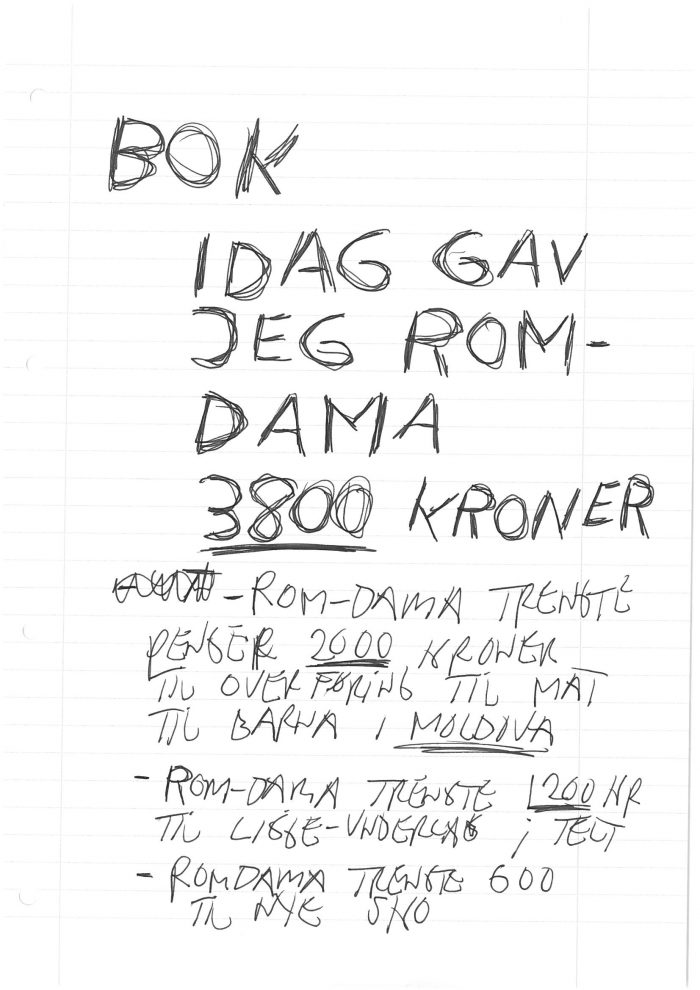 BOK
IDAG GAV
JEG ROM-
DAMA
3800 KRONER
- ROM-DAMA TRENGTE
PENGER 2000 KRONER
TIL OVERFØRING TIL MAT
TIL BARNA I MOLDIVA
- ROM-DAMA TRENGTE 1200 KR
TIL LIGGE-UNDERLAG i TELT
- ROMDAMA TRENGTE 600
TIL NYE SKO